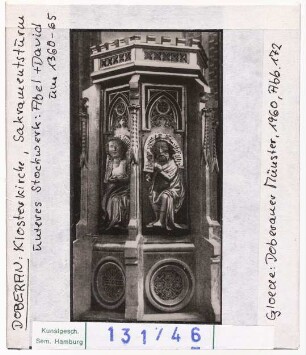 DOBERAN: Klosterkirche, Sakramentsturm
unteres Stockwerk: Abel + David
um 1360-65
Gloede: Doberaner Münster, 1960, Abb. 172
Kunstgesch.
Sem. Hamburg
131746